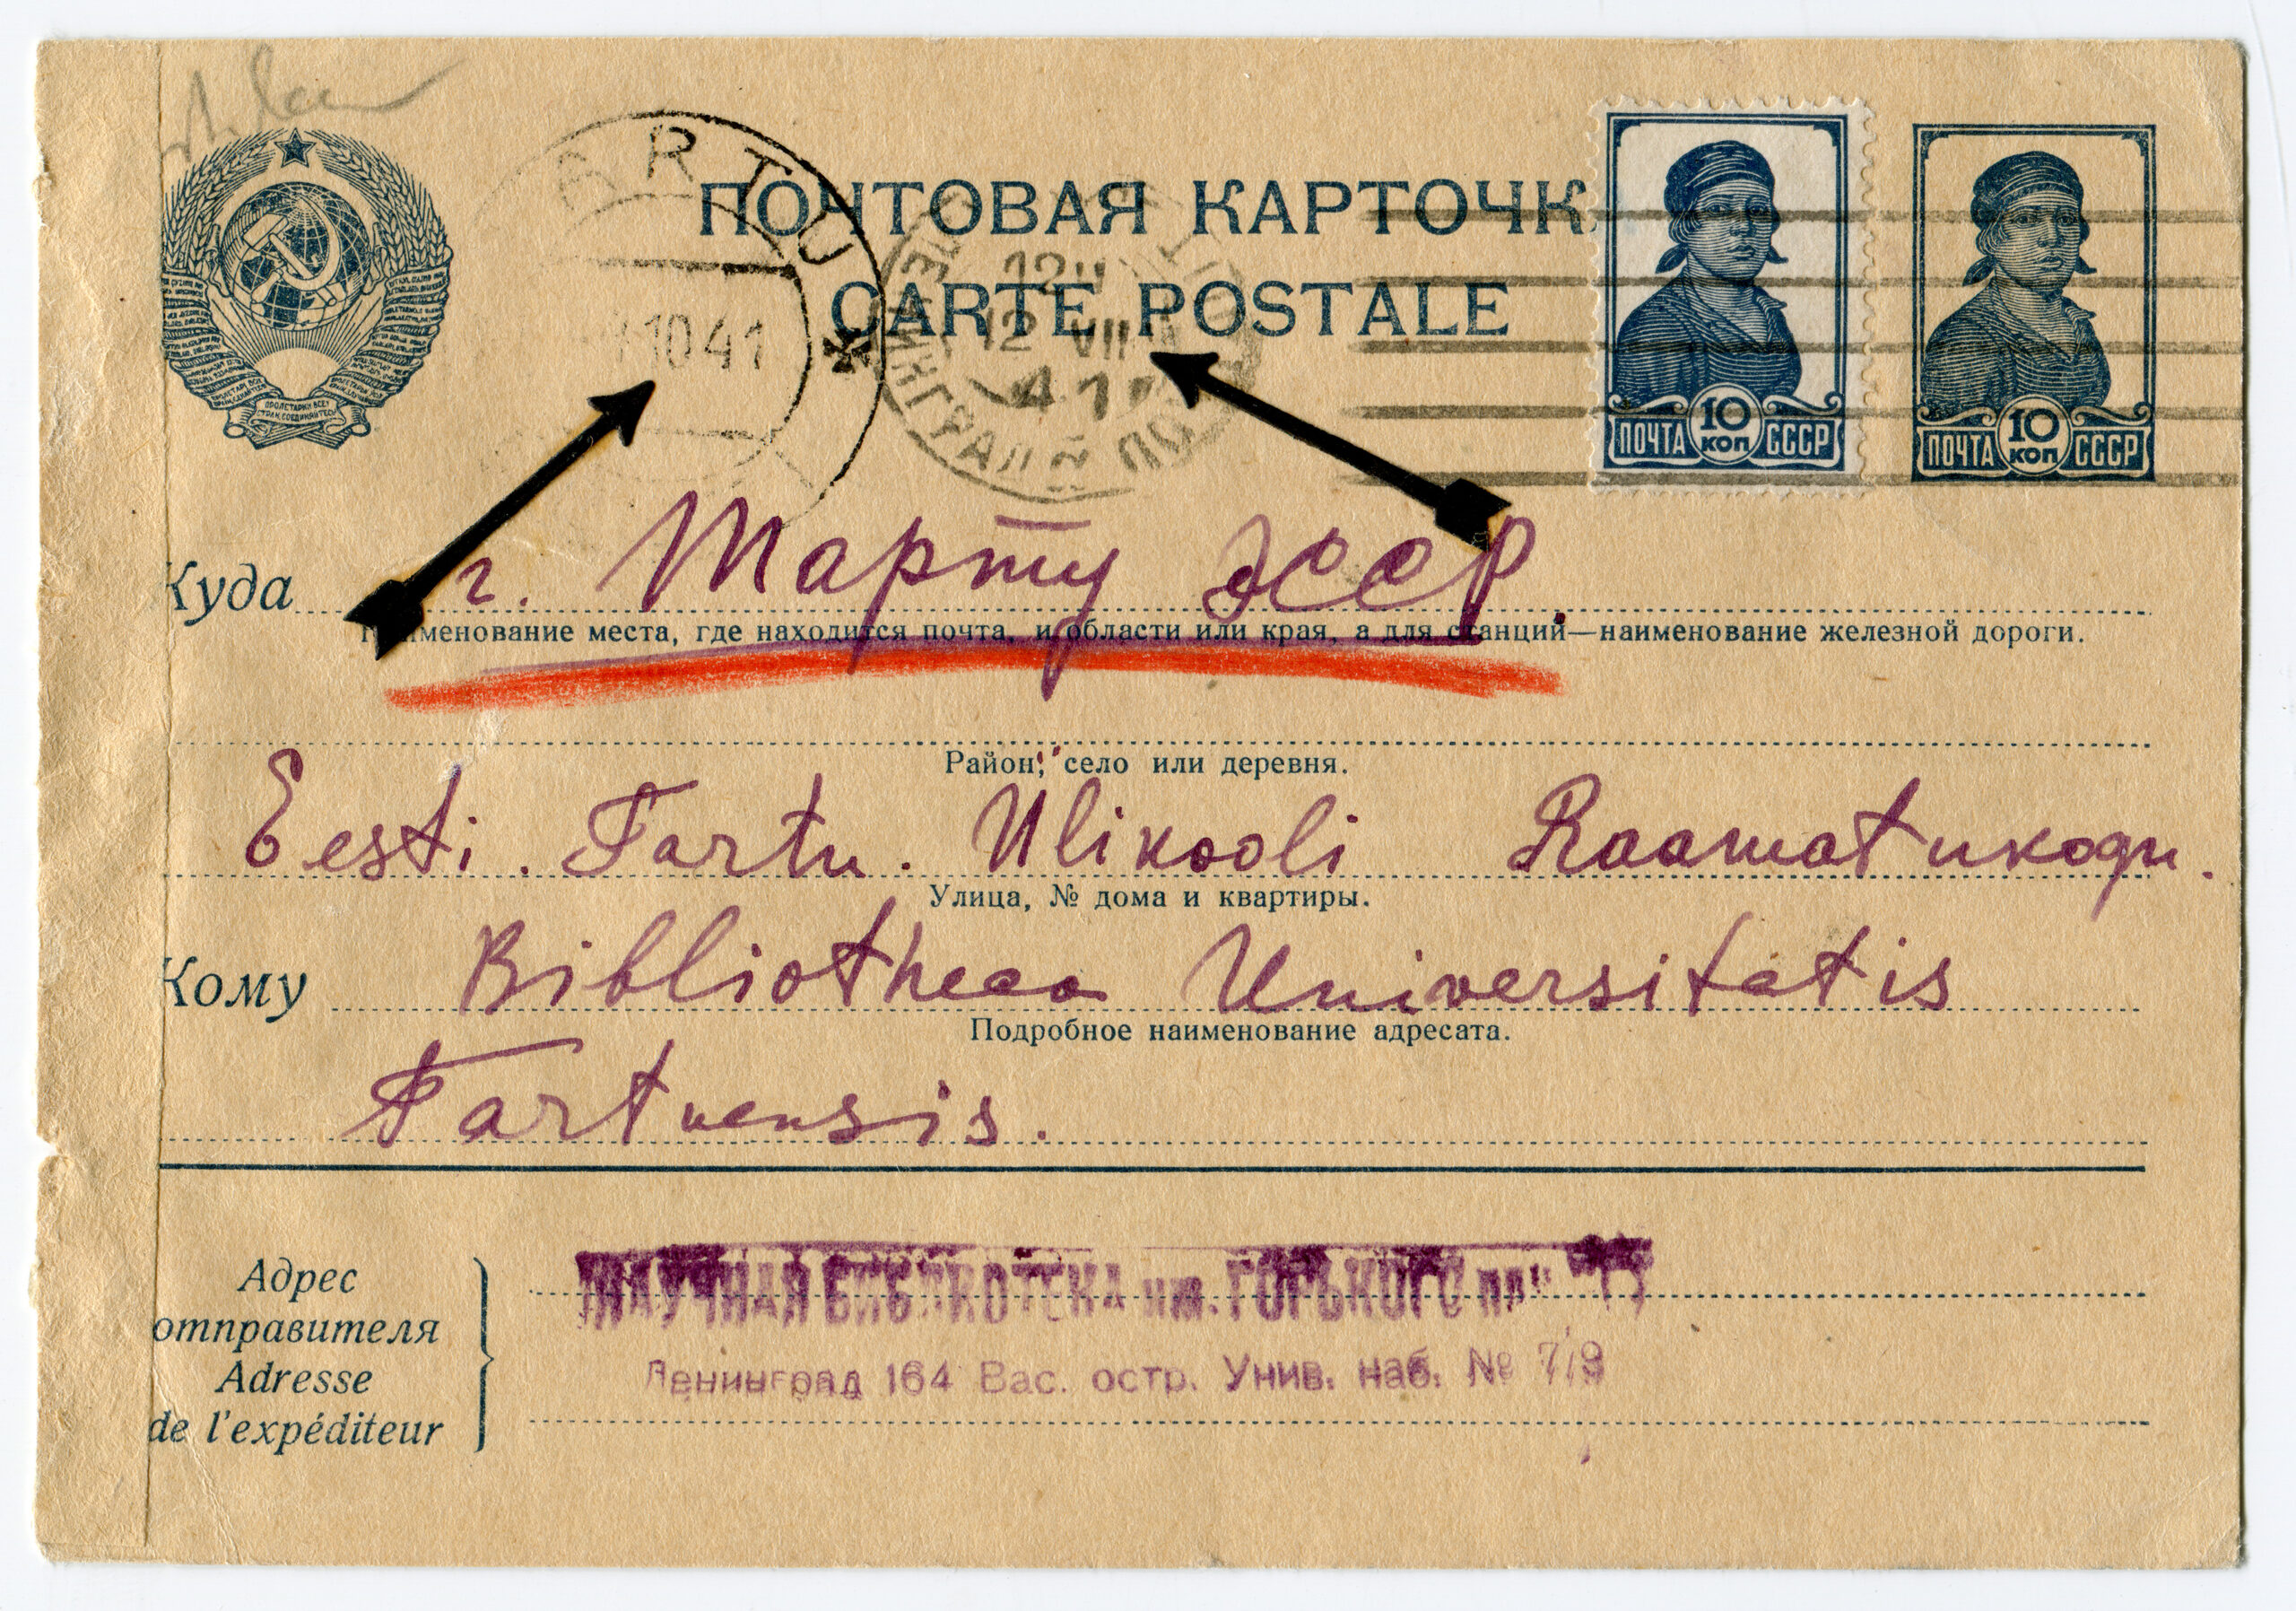 TARTU
ПОЧТОВАЯ КАРТОЧК
CARTE POSTALE
10 41
12
12 VII
41
ПОЧТА 10 КОП СССР
ПОЧТА 10 КОП СССР
Куда г. Тарту ЭССР.
Наименование места, где находится почта, и области или края, а для станций—наименование железной дороги.
Район, село или деревня.
Eesti. Tartu. Ulikooli Raamatukogu.
Улица, № дома и квартиры.
Кому Bibliotheca Universitatis
Подробное наименование адресата.
Tartuensis.
Адрес
отправителя
Adresse
de l'expéditeur
НАУЧНАЯ БИБЛИОТЕКА им. ГОРЬКОГО при
Ленинград 164 Вас. остр. Унив. наб. № 7/9